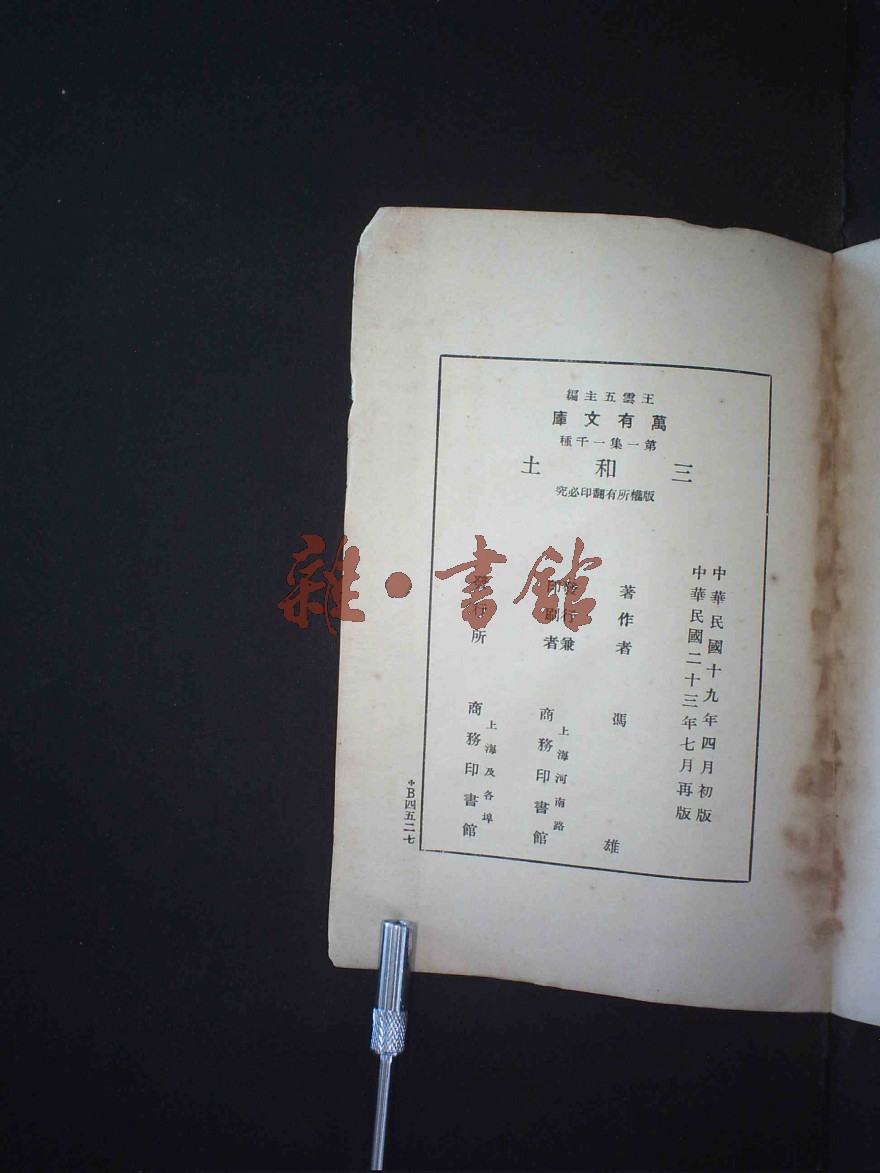 王雲五主編
萬有文庫
第一集一千種
三和土
版權所有翻印必究
中華民國十九年四月初版
中華民國二十三年七月再版
著作者 馮雄
發行兼印刷者 上海河南路 商務印書館
發行所 上海及各埠 商務印書館
*B四五二七
雜·書館